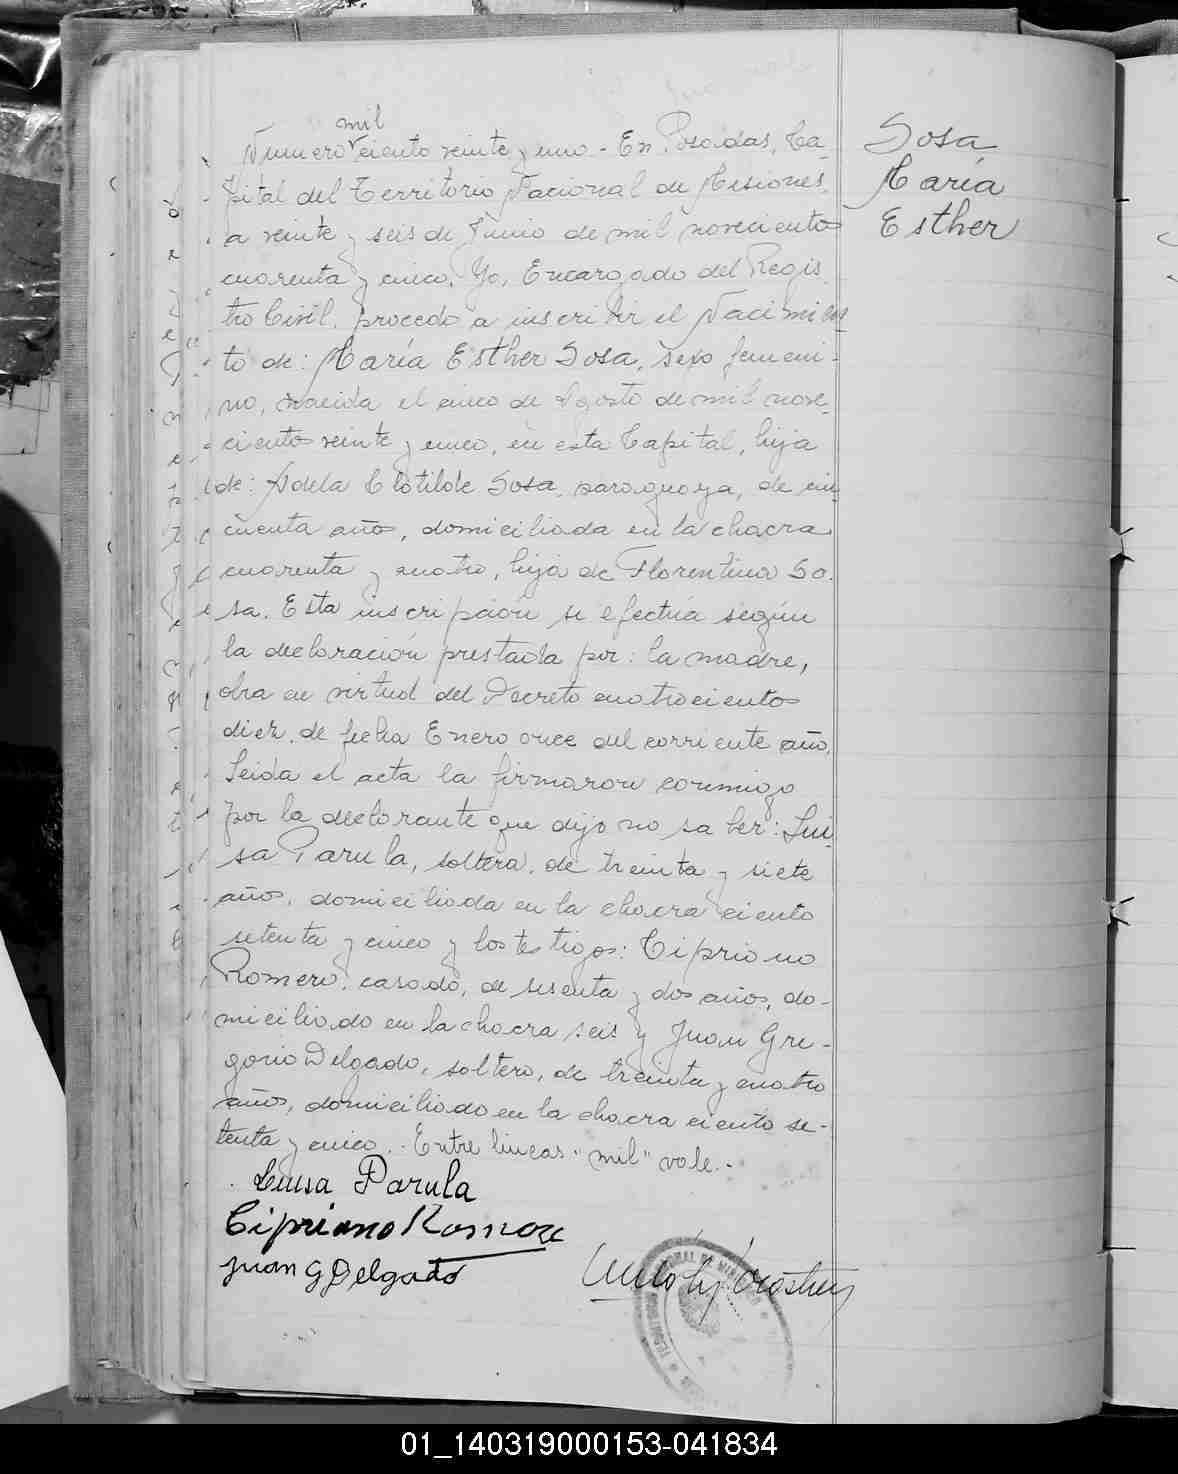 mil
Numero ciento veinte y uno.- En Posadas, Ca-
pital del Territorio Nacional de Misiones,
a veinte y seis de Junio de mil novecientos
cuarenta y cinco. Yo, Encargado del Regis
tro Civil, procedo a inscribir el Nacimien
to de: María Esther Sosa, sexo femeni-
no, nacida el cinco de Agosto de mil nove-
cientos veinte y cinco, en esta Capital, hija
de: Adela Clotilde Sosa, paraguaya, de cin
cuenta años, domiciliada en la chacra
cuarenta y cuatro, hija de Florentina So-
sa. Esta inscripción se efectúa según
la declaración prestada por: la madre,
obra en virtud del Decreto cuatrocientos
diez, de fecha Enero once del corriente año.
Leida el acta la firmaron conmigo
por la declarante que dijo no saber: Lui
sa Parula, soltera, de treinta y siete
años, domiciliada en la chacra ciento
setenta y cinco y los testigos: Cipriano
Romero, casado, de sesenta y dos años, do-
miciliado en la chacra seis y Juan Gre-
gorio Delgado, soltero, de treinta y cuatro
años, domiciliado en la chacra ciento se-
tenta y cinco.- Entre lineas "mil" vale.-
Luisa Parula
Cipriano Romero
Juan G Delgado
Sosa
María
Esther
01_140319000153-041834